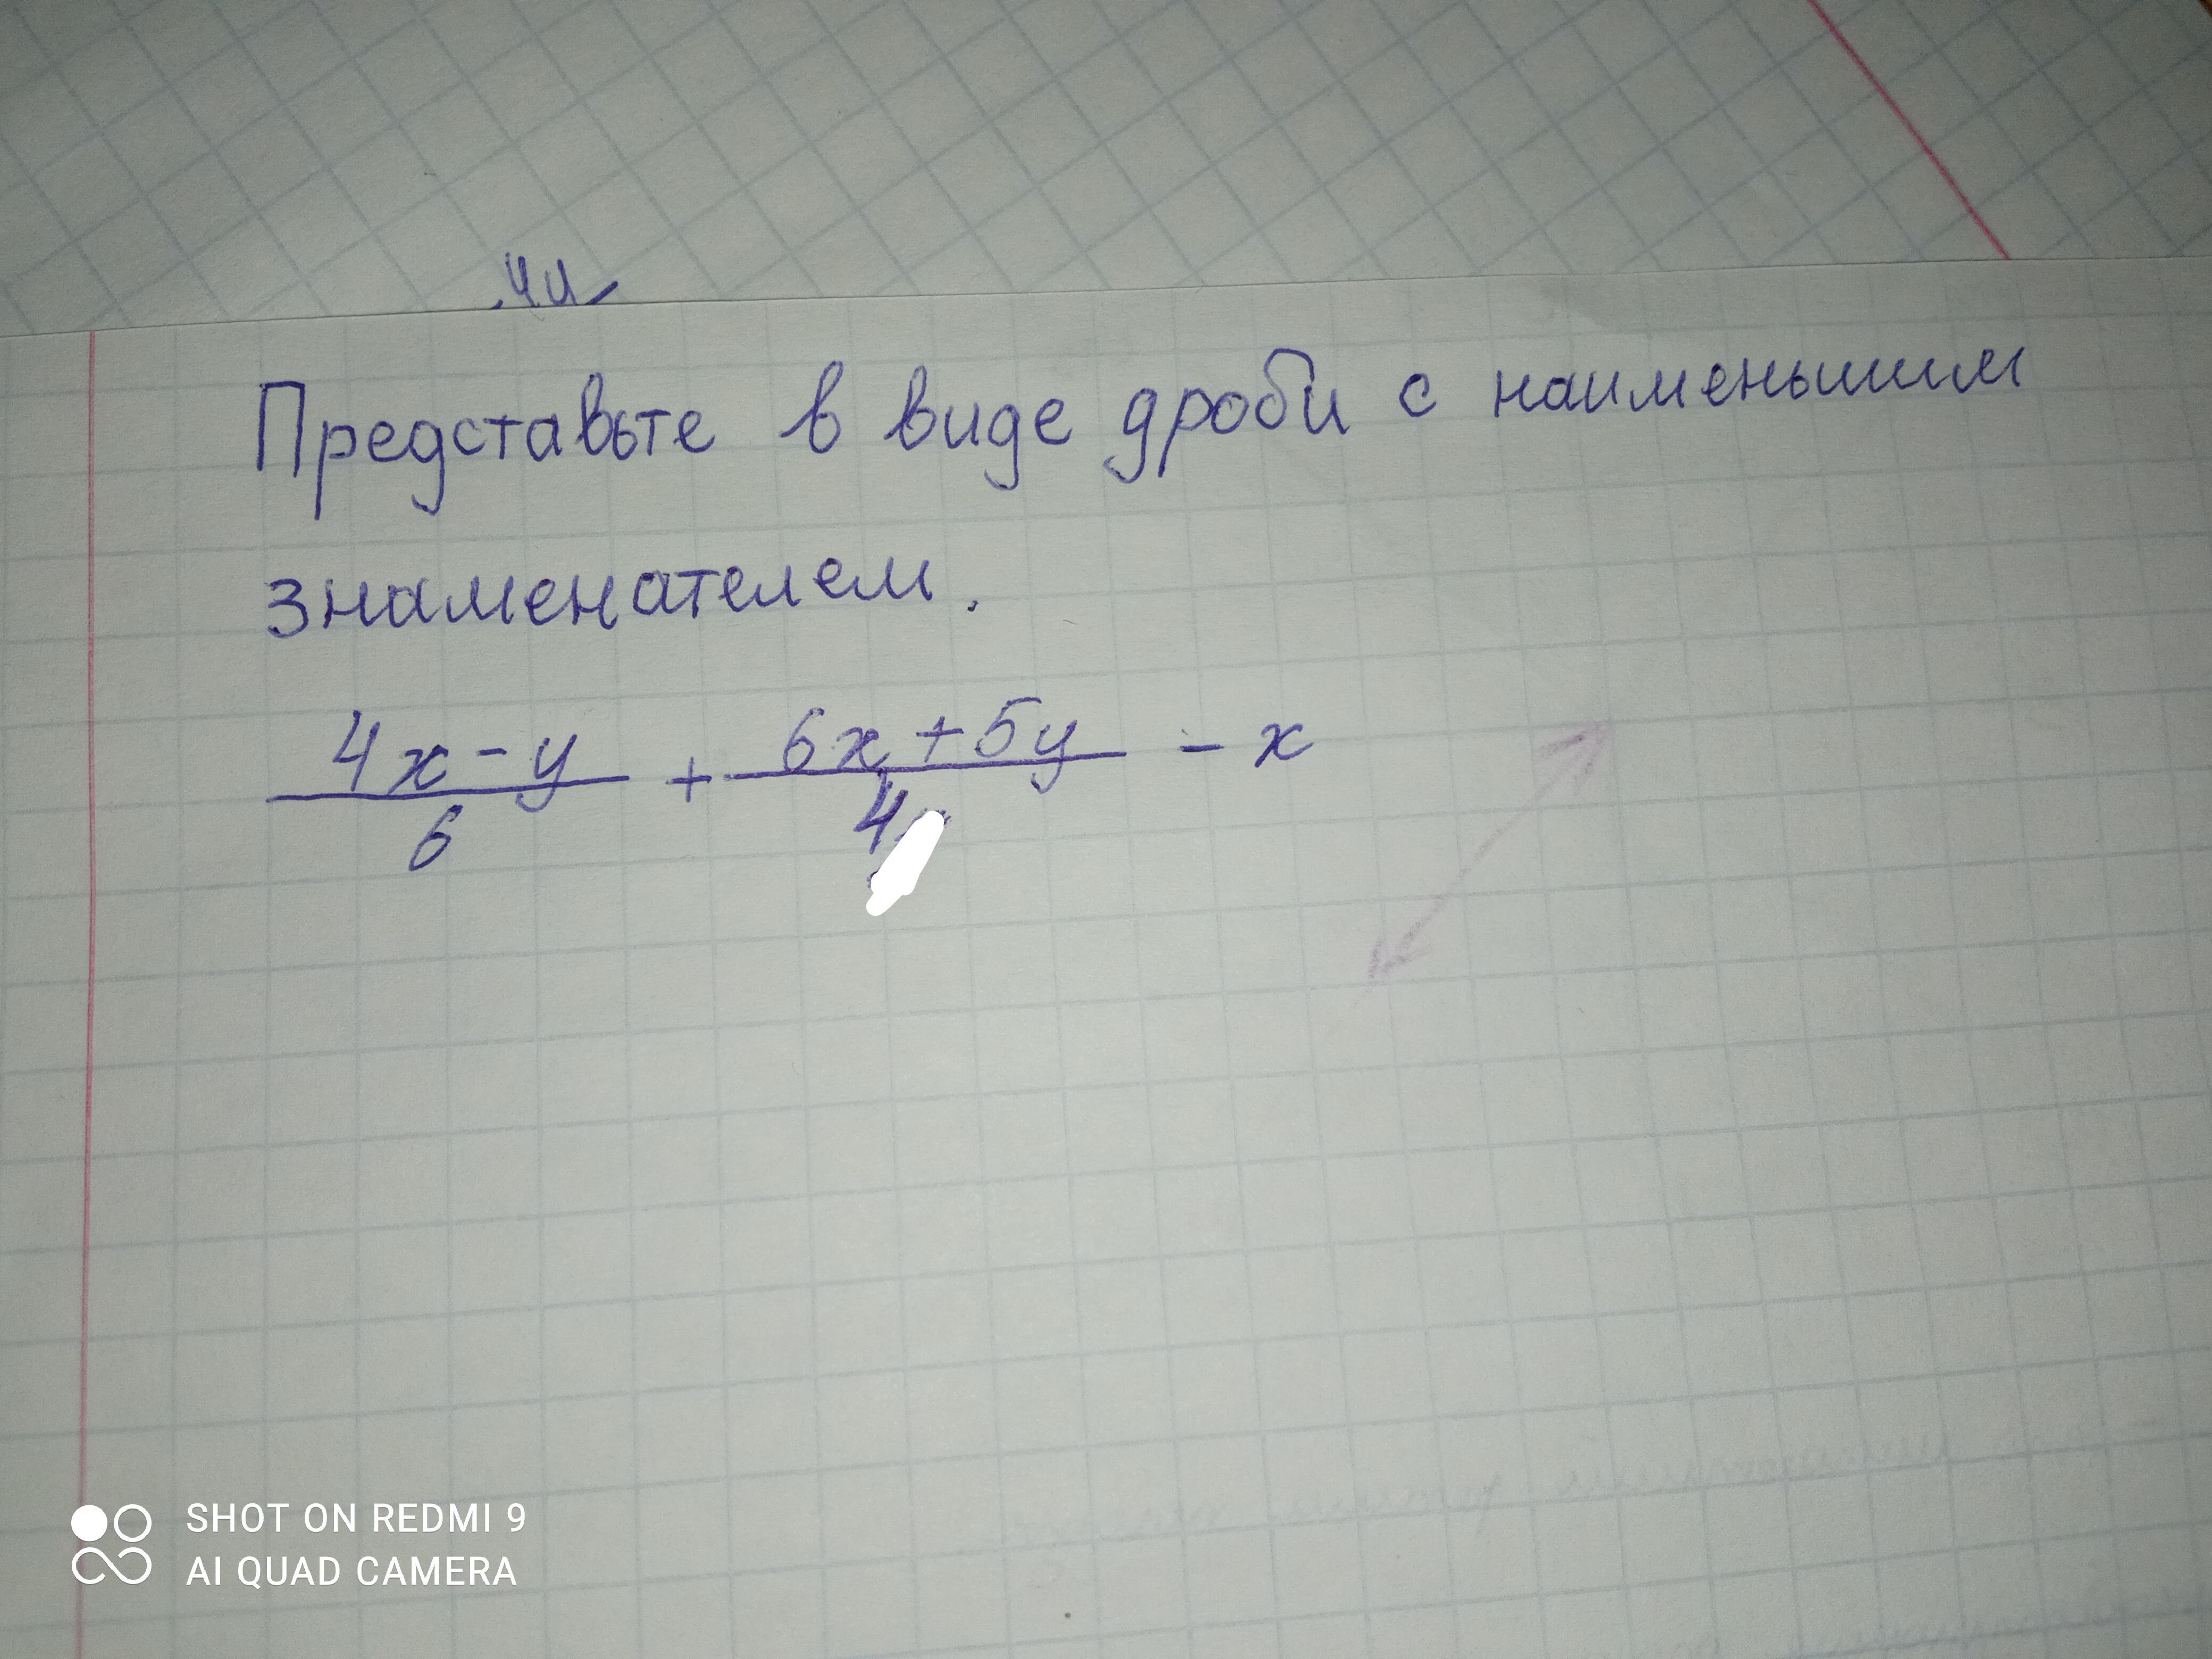 Представьте в виде дроби с наименьшим
знаменателем.
4x-y/6 + 6x+5y/4 - x
SHOT ON REDMI 9
AI QUAD CAMERA